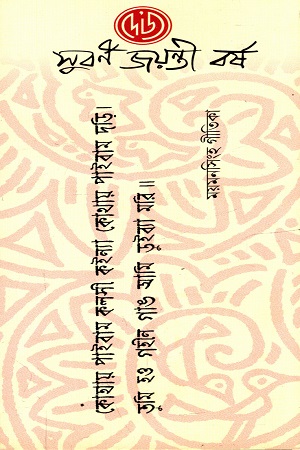 দেজ
সুবর্ণ জয়ন্তী বর্ষ
কোথায় পাইবাম কলসী কইন্যা কোথায় পাইবাম দড়ি।
তুমি হও গহীন গাঙ আমি ডুইব্যা মরি॥
ময়মনসিংহ গীতিকা